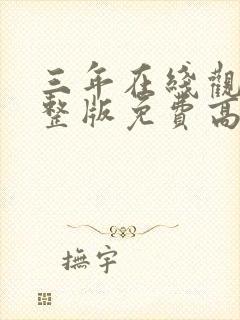 三年在线觀
整版免費高
撫宇